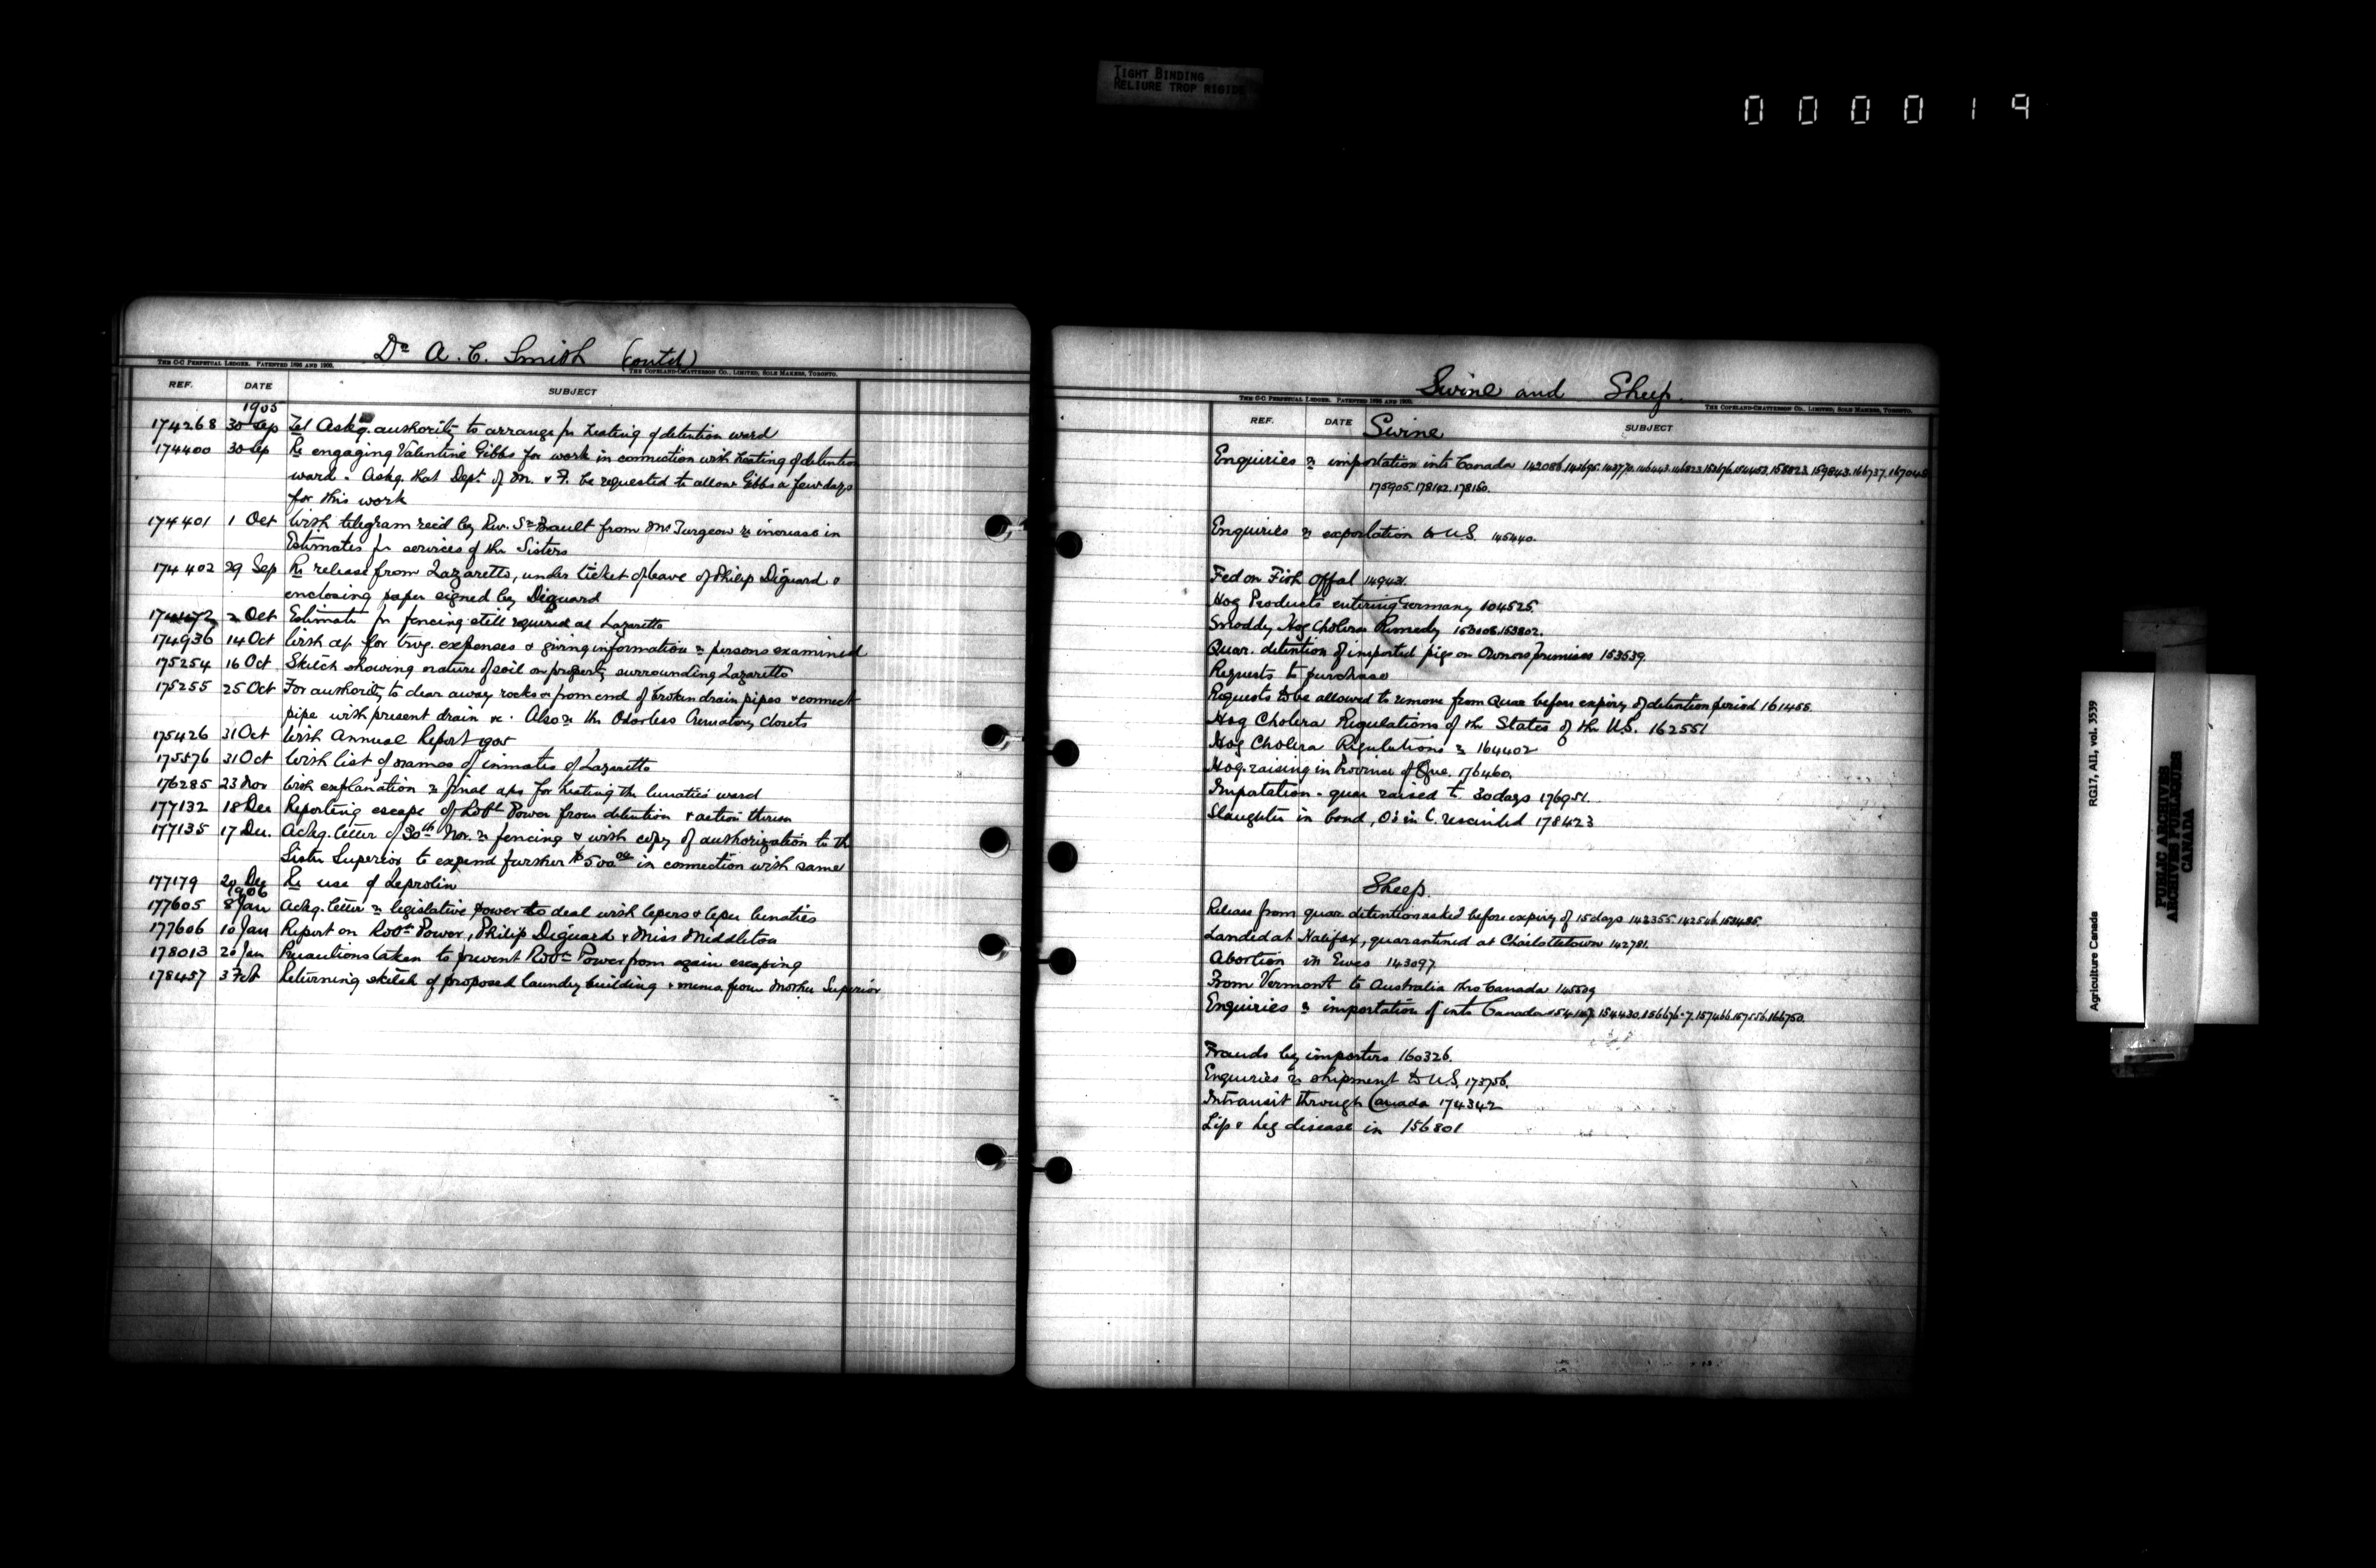 TIGHT BINDING
RELIURE TROP RIGIDE
000019
Dr A. C. Smith (contd)
THE C-C PERPETUAL LEDGER. PATENTED 1896 AND 1900.
THE COPELAND-CHATTERSON CO., LIMITED, SOLE MAKERS, TORONTO.
REF. DATE SUBJECT
1905
174268 30 Sep Tel Askg. authority to arrange for heating of detention ward
174400 30 Sep Re engaging Valentine Gibbs for work in connection with heating of detention
ward. Askg. that Dept. of M. & F. be requested to allow Gibbs a few days
for this work
174401 1 Oct With telegram recd by Rev. from Mr Turgeon re increase in
Estimates for services of the Sisters
174402 29 Sep Re release from Lazaretto, under ticket of leave of Philip Diguard &
enclosing paper signed by Diguard
2 Oct Estimate for fencing still required at Lazaretto
174936 14 Oct With ap for trvg. expenses & giving information re persons examined
175254 16 Oct Sketch showing nature of soil on property surrounding Lazaretto
175255 25 Oct For authority to clear away rocks from end of broken drain pipes & connect
pipe with present drain &c. Also re the Odorless Crematory Closets
175426 31 Oct With Annual Report 1905
175576 31 Oct With list of names of inmates of Lazaretto
176285 23 Nov With explanation re final aps for heating the lunatics ward
177132 18 Dec Reporting escape of Robt Power from detention & action thereon
177135 17 Dec. Ackg. letter of 30th Nov. re fencing & with copy of authorization to the
Sister Superior to expend further $500 00 in connection with same
177179 20 Dec Re use of Leprolin
1906
177605 8 Jan Ackg. letter re legislative power to deal with lepers & leper lunatics
177606 10 Jan Report on Robt Power, Philip Diguard & Miss Middleton
178013 20 Jan Precautions taken to prevent Robt Power from again escaping
178457 3 Feb Returning sketch of proposed laundry building & memo. from Mother Superior
Swine and Sheep.
THE C-C PERPETUAL LEDGER. PATENTED 1896 AND 1900.
THE COPELAND-CHATTERSON CO., LIMITED, SOLE MAKERS, TORONTO.
REF. DATE Swine SUBJECT
Enquiries re importation into Canada 142086. 159843. 166737. 167048
175905. 178142. 178160.
Enquiries re exportation to U.S. 145440.
Fed on Fish offal 149431.
Hog Products entering Germany 104525.
Smoddy Hog Cholera Remedy 153008. 153802.
Quar. detention of imported pigs on Owners premises 153539.
Requests to purchase
Requests to be allowed to remove from Quar before expiry of detention period 161455.
Hog Cholera Regulations of the States of the U.S. 162551
Hog Cholera Regulations re 164402
Hog-raising in Province of Que. 176460.
Importation - quar raised to 30 days 176951.
Slaughter in bond, O's in C. rescinded 178423
Sheep.
Release from quar. detention asked before expiry of 15 days 142355. 142546.
Landed at Halifax, quarantined at Charlottetown 142781.
Abortion in Ewes 143097
From Vermont to Australia thro Canada 145509
Enquiries re importation of into Canada 154430. 156676-7. 157466. 157556. 166750.
Frauds by importers 160326.
Enquiries re shipment to U.S. 173756.
Intransit through Canada 174342
Lip & Leg disease in 156801
Agriculture Canada RG17, AII, vol. 3539
PUBLIC ARCHIVES
ARCHIVES PUBLIQUES
CANADA